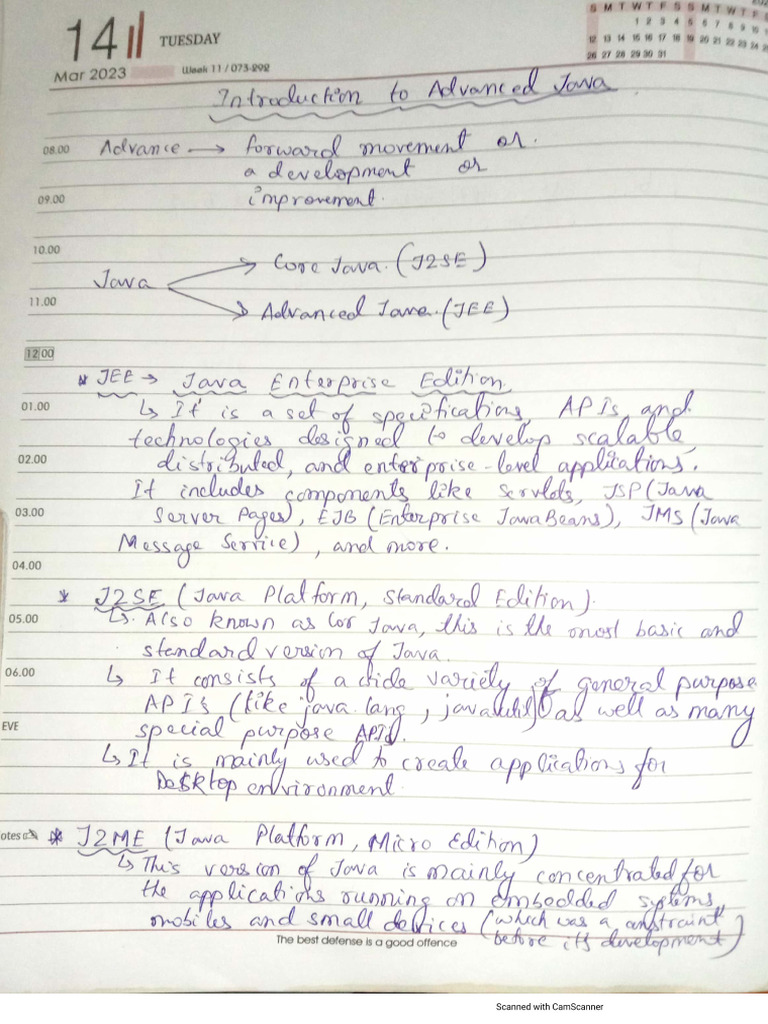 14
TUESDAY
Mar 2023
Week 11 / 073-292
S M T W T F S S M T W T F
1 2 3 4 5 6 7 8 9 10
12 13 14 15 16 17 18 19 20 21 22 23 24
26 27 28 29 30 31
Introduction to Advanced Java
08.00 Advance → forward movement or
a development or
09.00 improvement.
10.00 Core Java. (J2SE)
Java
11.00 Advanced Java. (JEE)
12.00
* JEE → Java Enterprise Edition.
01.00 ↳ It is a set of specifications, APIs, and
technologies designed to develop scalable,
02.00 distributed, and enterprise-level applications.
It includes components like Servlets, JSP (Java
03.00 Server Pages), EJB (Enterprise JavaBeans), JMS (Java
Message Service), and more.
04.00
* J2SE (Java Platform, Standard Edition).
05.00 ↳. Also known as Cor Java, this is the most basic and
standard version of Java.
06.00 ↳ It consists of a wide variety of general purpose
APIs (like java.lang, java.util) as well as many
EVE special purpose APIs.
↳ It is mainly used to create applications for
Desktop environment.
otes * J2ME (Java Platform, Micro Edition)
↳ This version of Java is mainly concentrated for
the applications running on embedded systems,
mobiles and small devices (which was a constraint
before its development)
The best defense is a good offence
Scanned with CamScanner